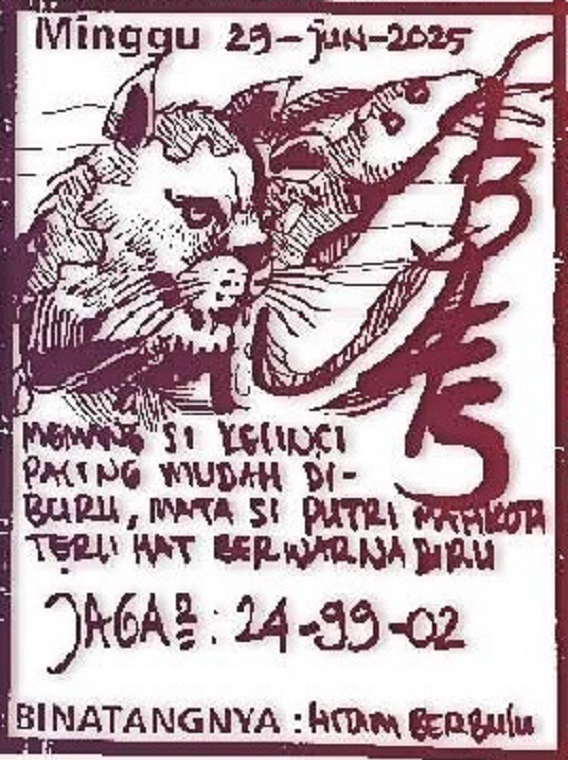 Minggu 29-JUN-2025
MEMANG SI KELINCI
PALING MUDAH DI-
BURU, MATA SI PUTRI MAHKOTA
TERLIHAT BERWARNA BIRU
JAGA2 : 24-99-02
BINATANGNYA : HITAM BERBULU